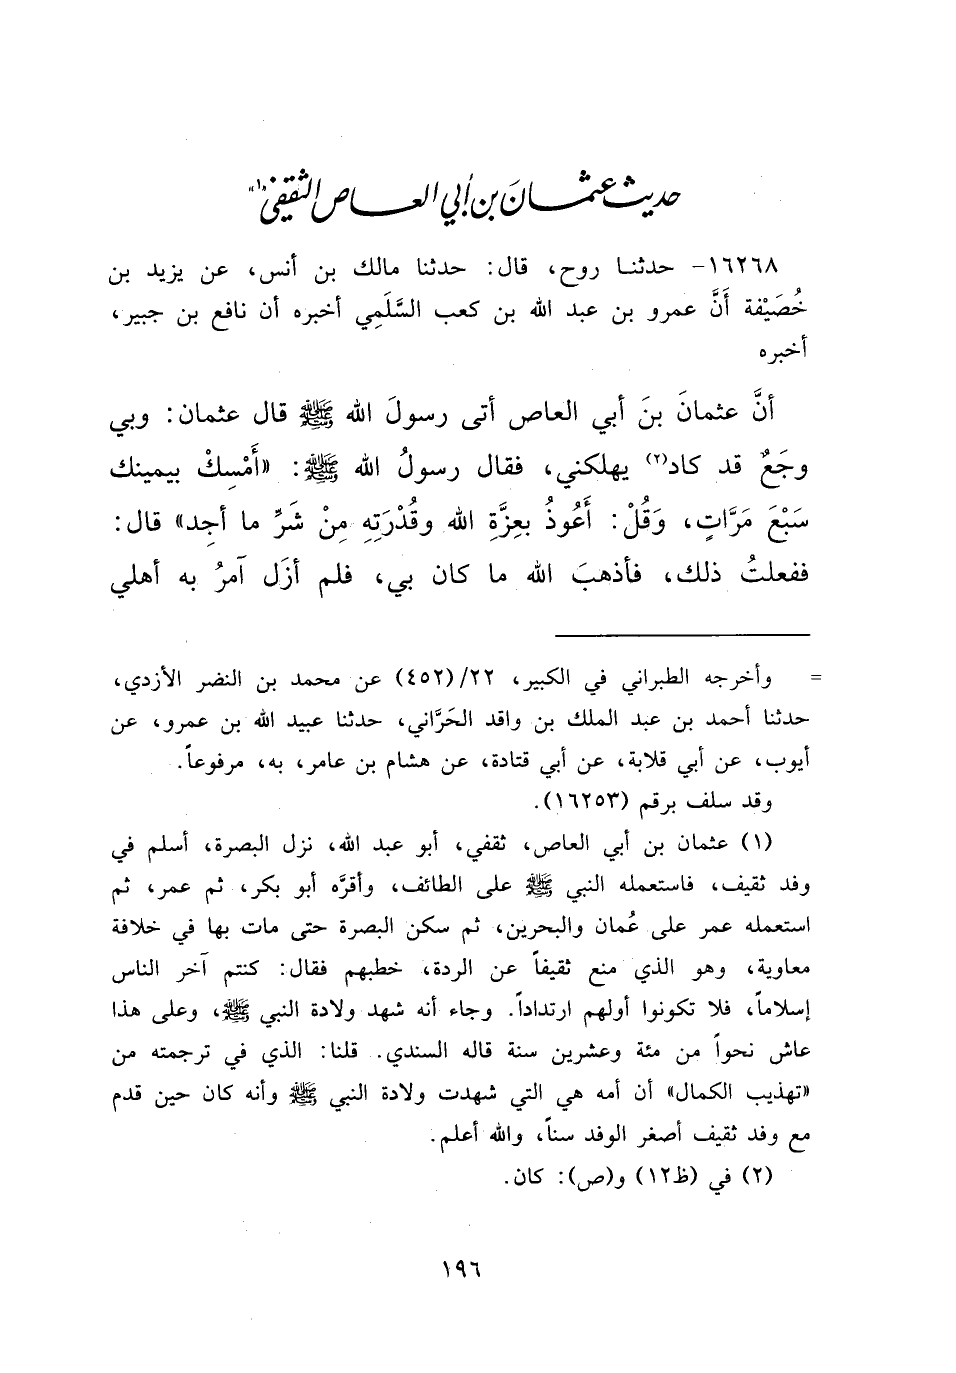 حديث عثمان بن أبي العاص الثقفي(١)
١٦٢٦٨- حدثنا روح، قال: حدثنا مالك بن أنس، عن يزيد بن
خُصَيْفة أنَّ عمرو بن عبد الله بن كعب السَّلَمِي أخبره أن نافع بن جبير،
أخبره
أنَّ عثمانَ بنَ أبي العاص أتى رسولَ الله ﷺ قال عثمان: وبي
وجَعٌ قد كاد(٢) يهلكني، فقال رسولُ الله ﷺ: «أَمْسِكْ بيمينك
سَبْعَ مَرَّاتٍ، وَقُلْ: أَعُوذُ بعِزَّةِ الله وقُدْرَتِهِ مِنْ شَرِّ ما أجِد» قال:
ففعلتُ ذلك، فأذهبَ الله ما كان بي، فلم أزَل آمرُ به أهلي
= وأخرجه الطبراني في الكبير، ٢٢/(٤٥٢) عن محمد بن النضر الأزدي،
حدثنا أحمد بن عبد الملك بن واقد الحَرَّاني، حدثنا عبيد الله بن عمرو، عن
أيوب، عن أبي قلابة، عن أبي قتادة، عن هشام بن عامر، به، مرفوعاً.
وقد سلف برقم (١٦٢٥٣).
(١) عثمان بن أبي العاص، ثقفي، أبو عبد الله، نزل البصرة، أسلم في
وفد ثقيف، فاستعمله النبي ﷺ على الطائف، وأقرَّه أبو بكر، ثم عمر، ثم
استعمله عمر على عُمان والبحرين، ثم سكن البصرة حتى مات بها في خلافة
معاوية، وهو الذي منع ثقيفاً عن الردة، خطبهم فقال: كنتم آخر الناس
إسلاماً، فلا تكونوا أولهم ارتداداً. وجاء أنه شهد ولادة النبي ﷺ، وعلى هذا
عاش نحواً من مئة وعشرين سنة قاله السندي. قلنا: الذي في ترجمته من
«تهذيب الكمال» أن أمه هي التي شهدت ولادة النبي ﷺ وأنه كان حين قدم
مع وفد ثقيف أصغر الوفد سناً، والله أعلم.
(٢) في (ظ١٢) و(ص): كان.
١٩٦